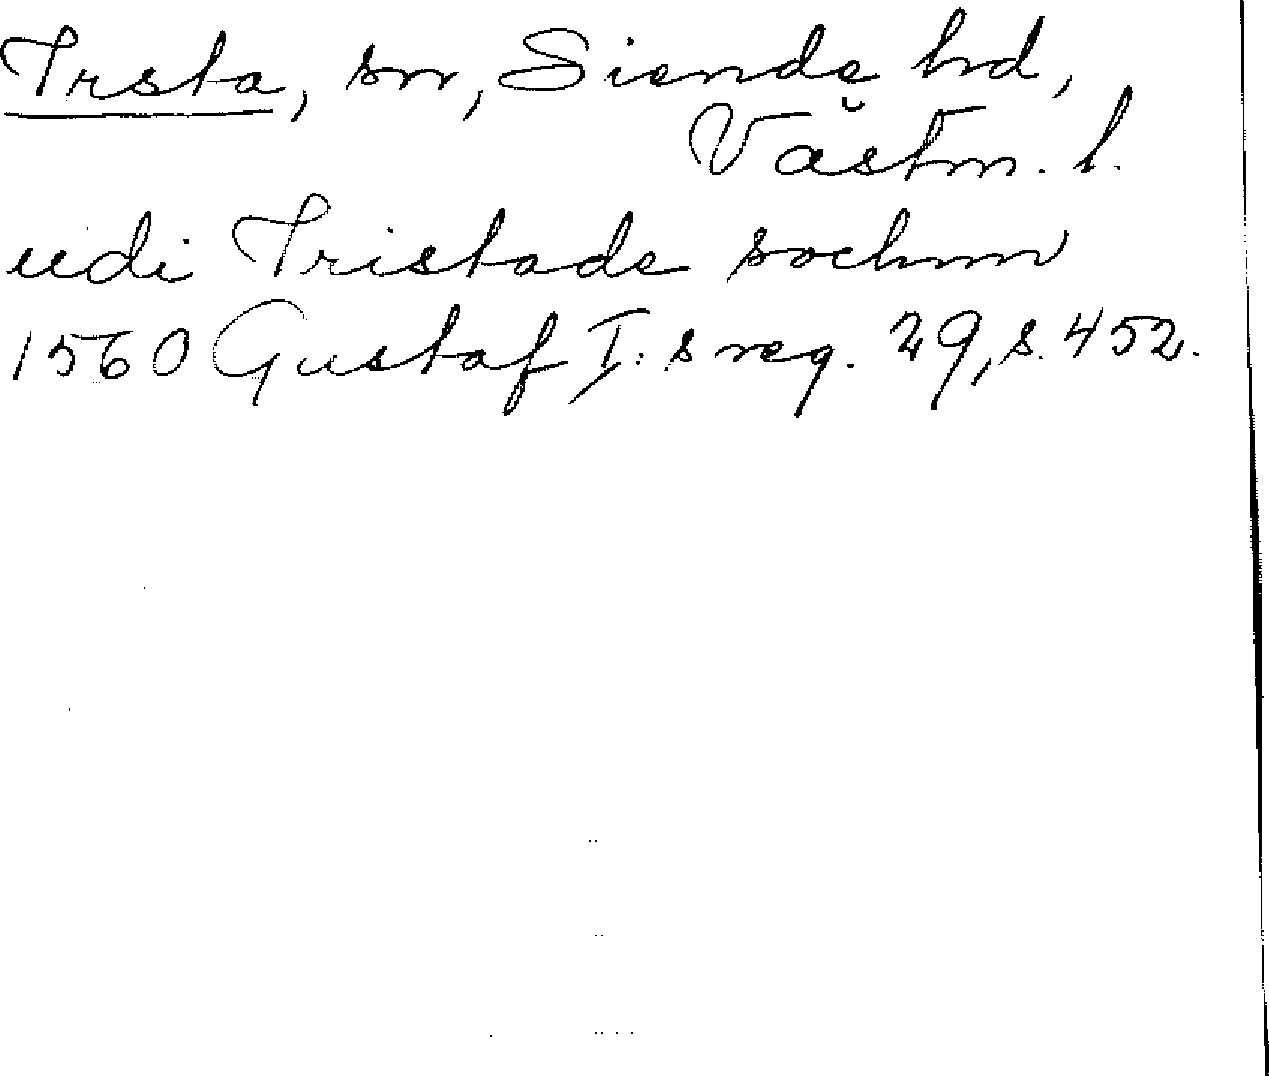 Irsta, sn, Siende hd,
Västm. l.
udi Iristade sochnn
1560 Gustaf I:s reg. 29, s. 452.